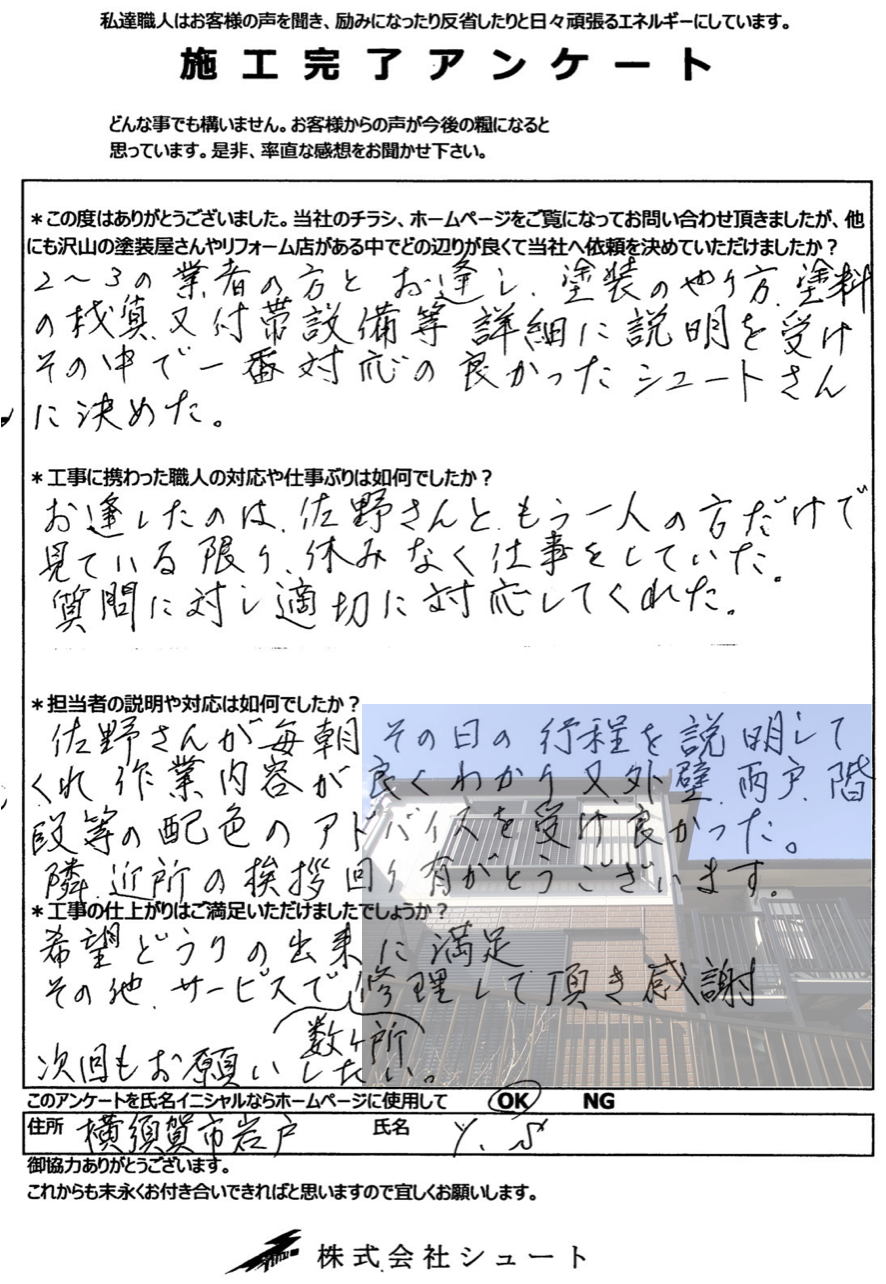 私達職人はお客様の声を聞き、励みになったり反省したりと日々頑張るエネルギーにしています。
施工完了アンケート
どんな事でも構いません。お客様からの声が今後の糧になると
思っています。是非、率直な感想をお聞かせ下さい。
＊この度はありがとうございました。当社のチラシ、ホームページをご覧になってお問い合わせ頂きましたが、他
にも沢山の塗装屋さんやリフォーム店がある中でどの辺りが良くて当社へ依頼を決めていただけましたか？
2〜3の業者の方とお逢し、塗装のやり方、塗料
の材質、又付帯設備等詳細に説明を受け
その中で一番対応の良かったシュートさん
に決めた。
＊工事に携わった職人の対応や仕事ぶりは如何でしたか？
お逢したのは、佐野さんと、もう一人の方だけで
見ている限り、休みなく仕事をしていた。
質問に対し適切に対応してくれた。
＊担当者の説明や対応は如何でしたか？
佐野さんが毎朝その日の行程を説明して
くれ作業内容が良くわかり又、外壁、雨戸、階
段等の配色のアドバイスを受け良かった。
隣、近所の挨拶回り有がとうございます。
＊工事の仕上がりはご満足いただけましたでしょうか？
希望どうりの出来に満足
その他、サービスで修理して頂き感謝
数ヶ所
次回もお願いしたい。
このアンケートを氏名イニシャルならホームページに使用して OK NG
住所 横須賀市岩戸 氏名 Y. S
御協力ありがとうございます。
これからも末永くお付き合いできればと思いますので宜しくお願いします。
株式会社シュート